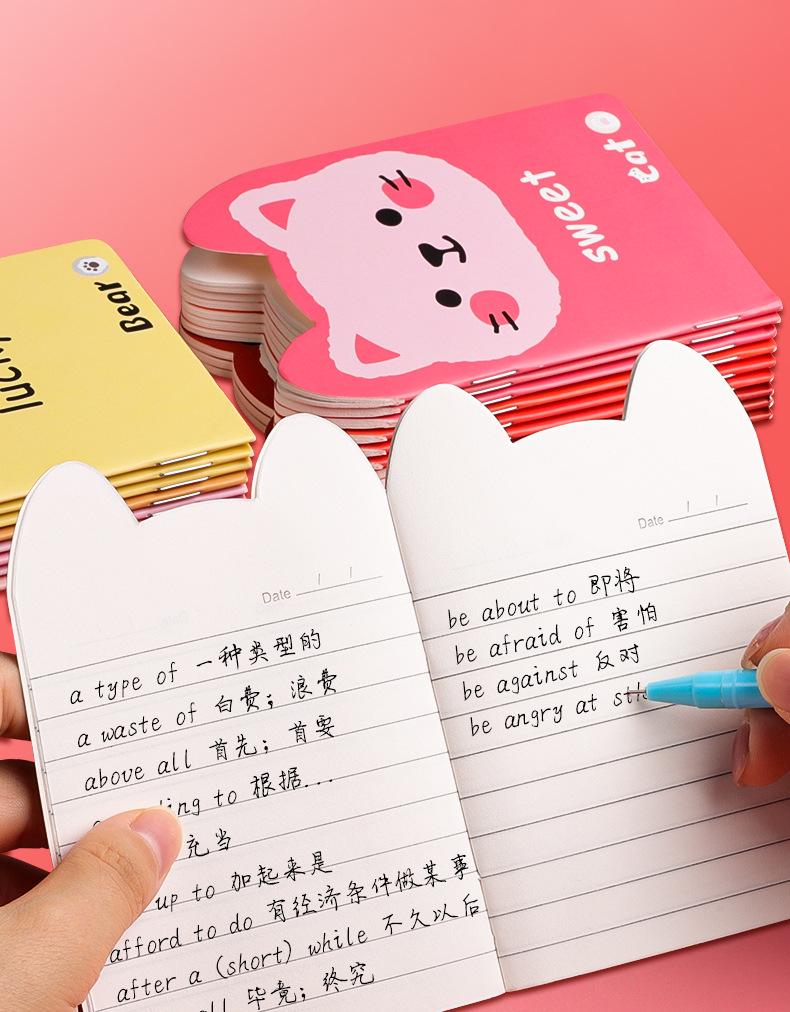 sweet
Cat
Bear
Date / /
a type of 一种类型的
a waste of 白费；浪费
above all 首先；首要
to 根据...
充当
up to 加起来是
afford to do 有经济条件做某事
after a (short) while 不久以后
毕竟；终究
Date / /
be about to 即将
be afraid of 害怕
be against 反对
be angry at